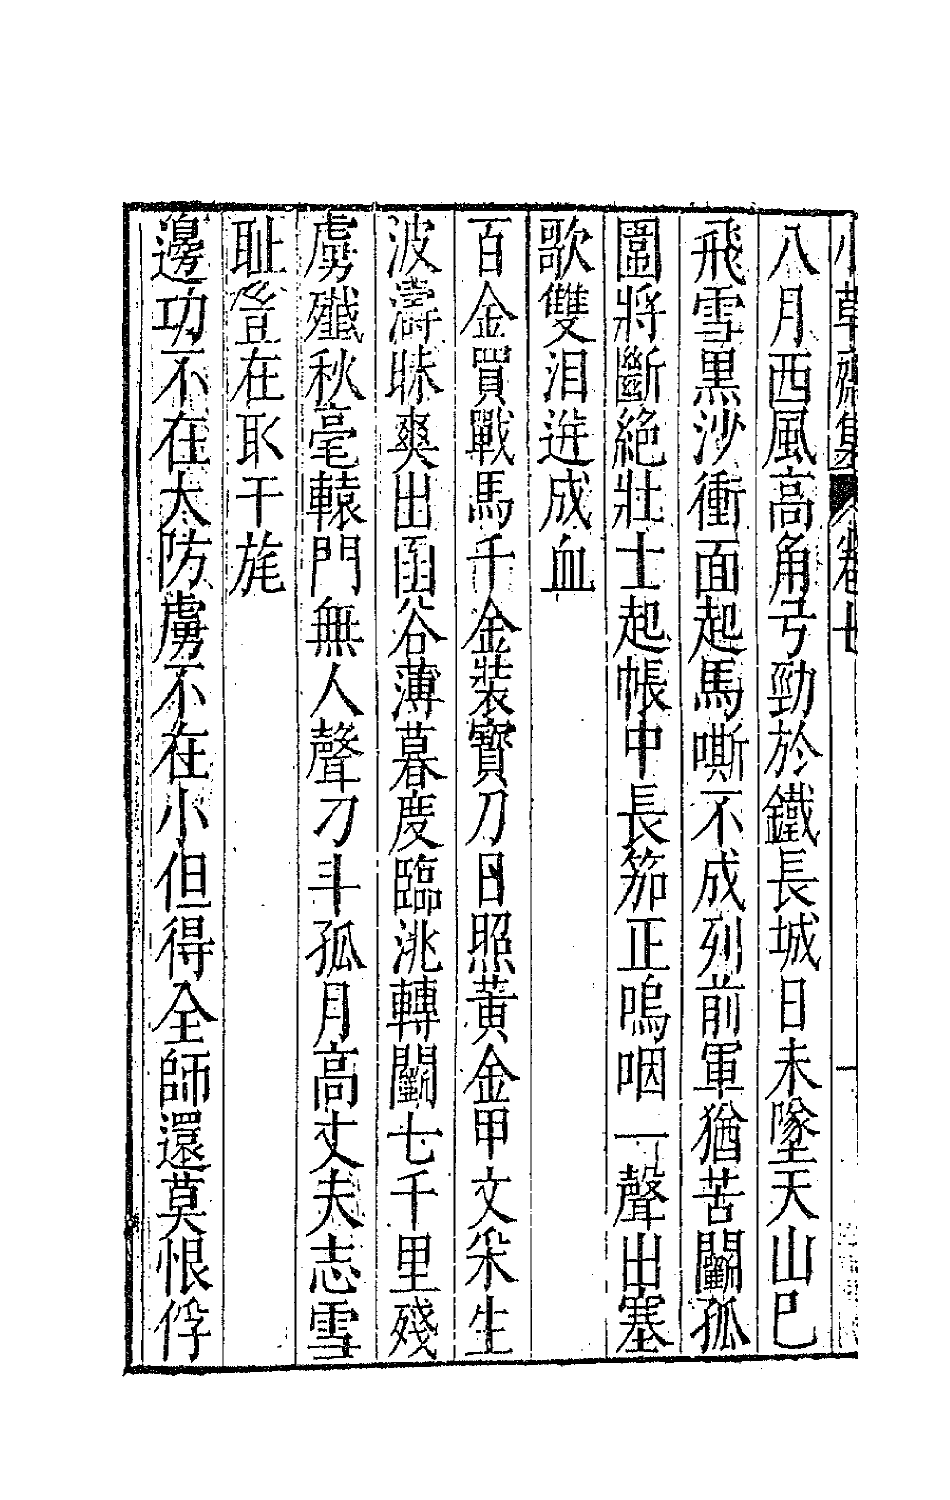 小草齋集 卷七
八月西風高角弓勁於鐵長城日未墜天山巳
飛雪黑沙衝面起馬嘶不成列前軍猶苦鬭孤
圍將斷絕壯士起帳中長笳正嗚咽一聲出塞
歌雙泪迸成血
百金買戰馬千金裝寶刀日照黃金甲文采生
波濤昧爽出函谷薄暮度臨洮轉鬭七千里殘
虜殲秋毫轅門無人聲刁斗孤月高丈夫志雪
耻豈在取干旄
邊功不在大防虜不在小但得全師還莫恨俘